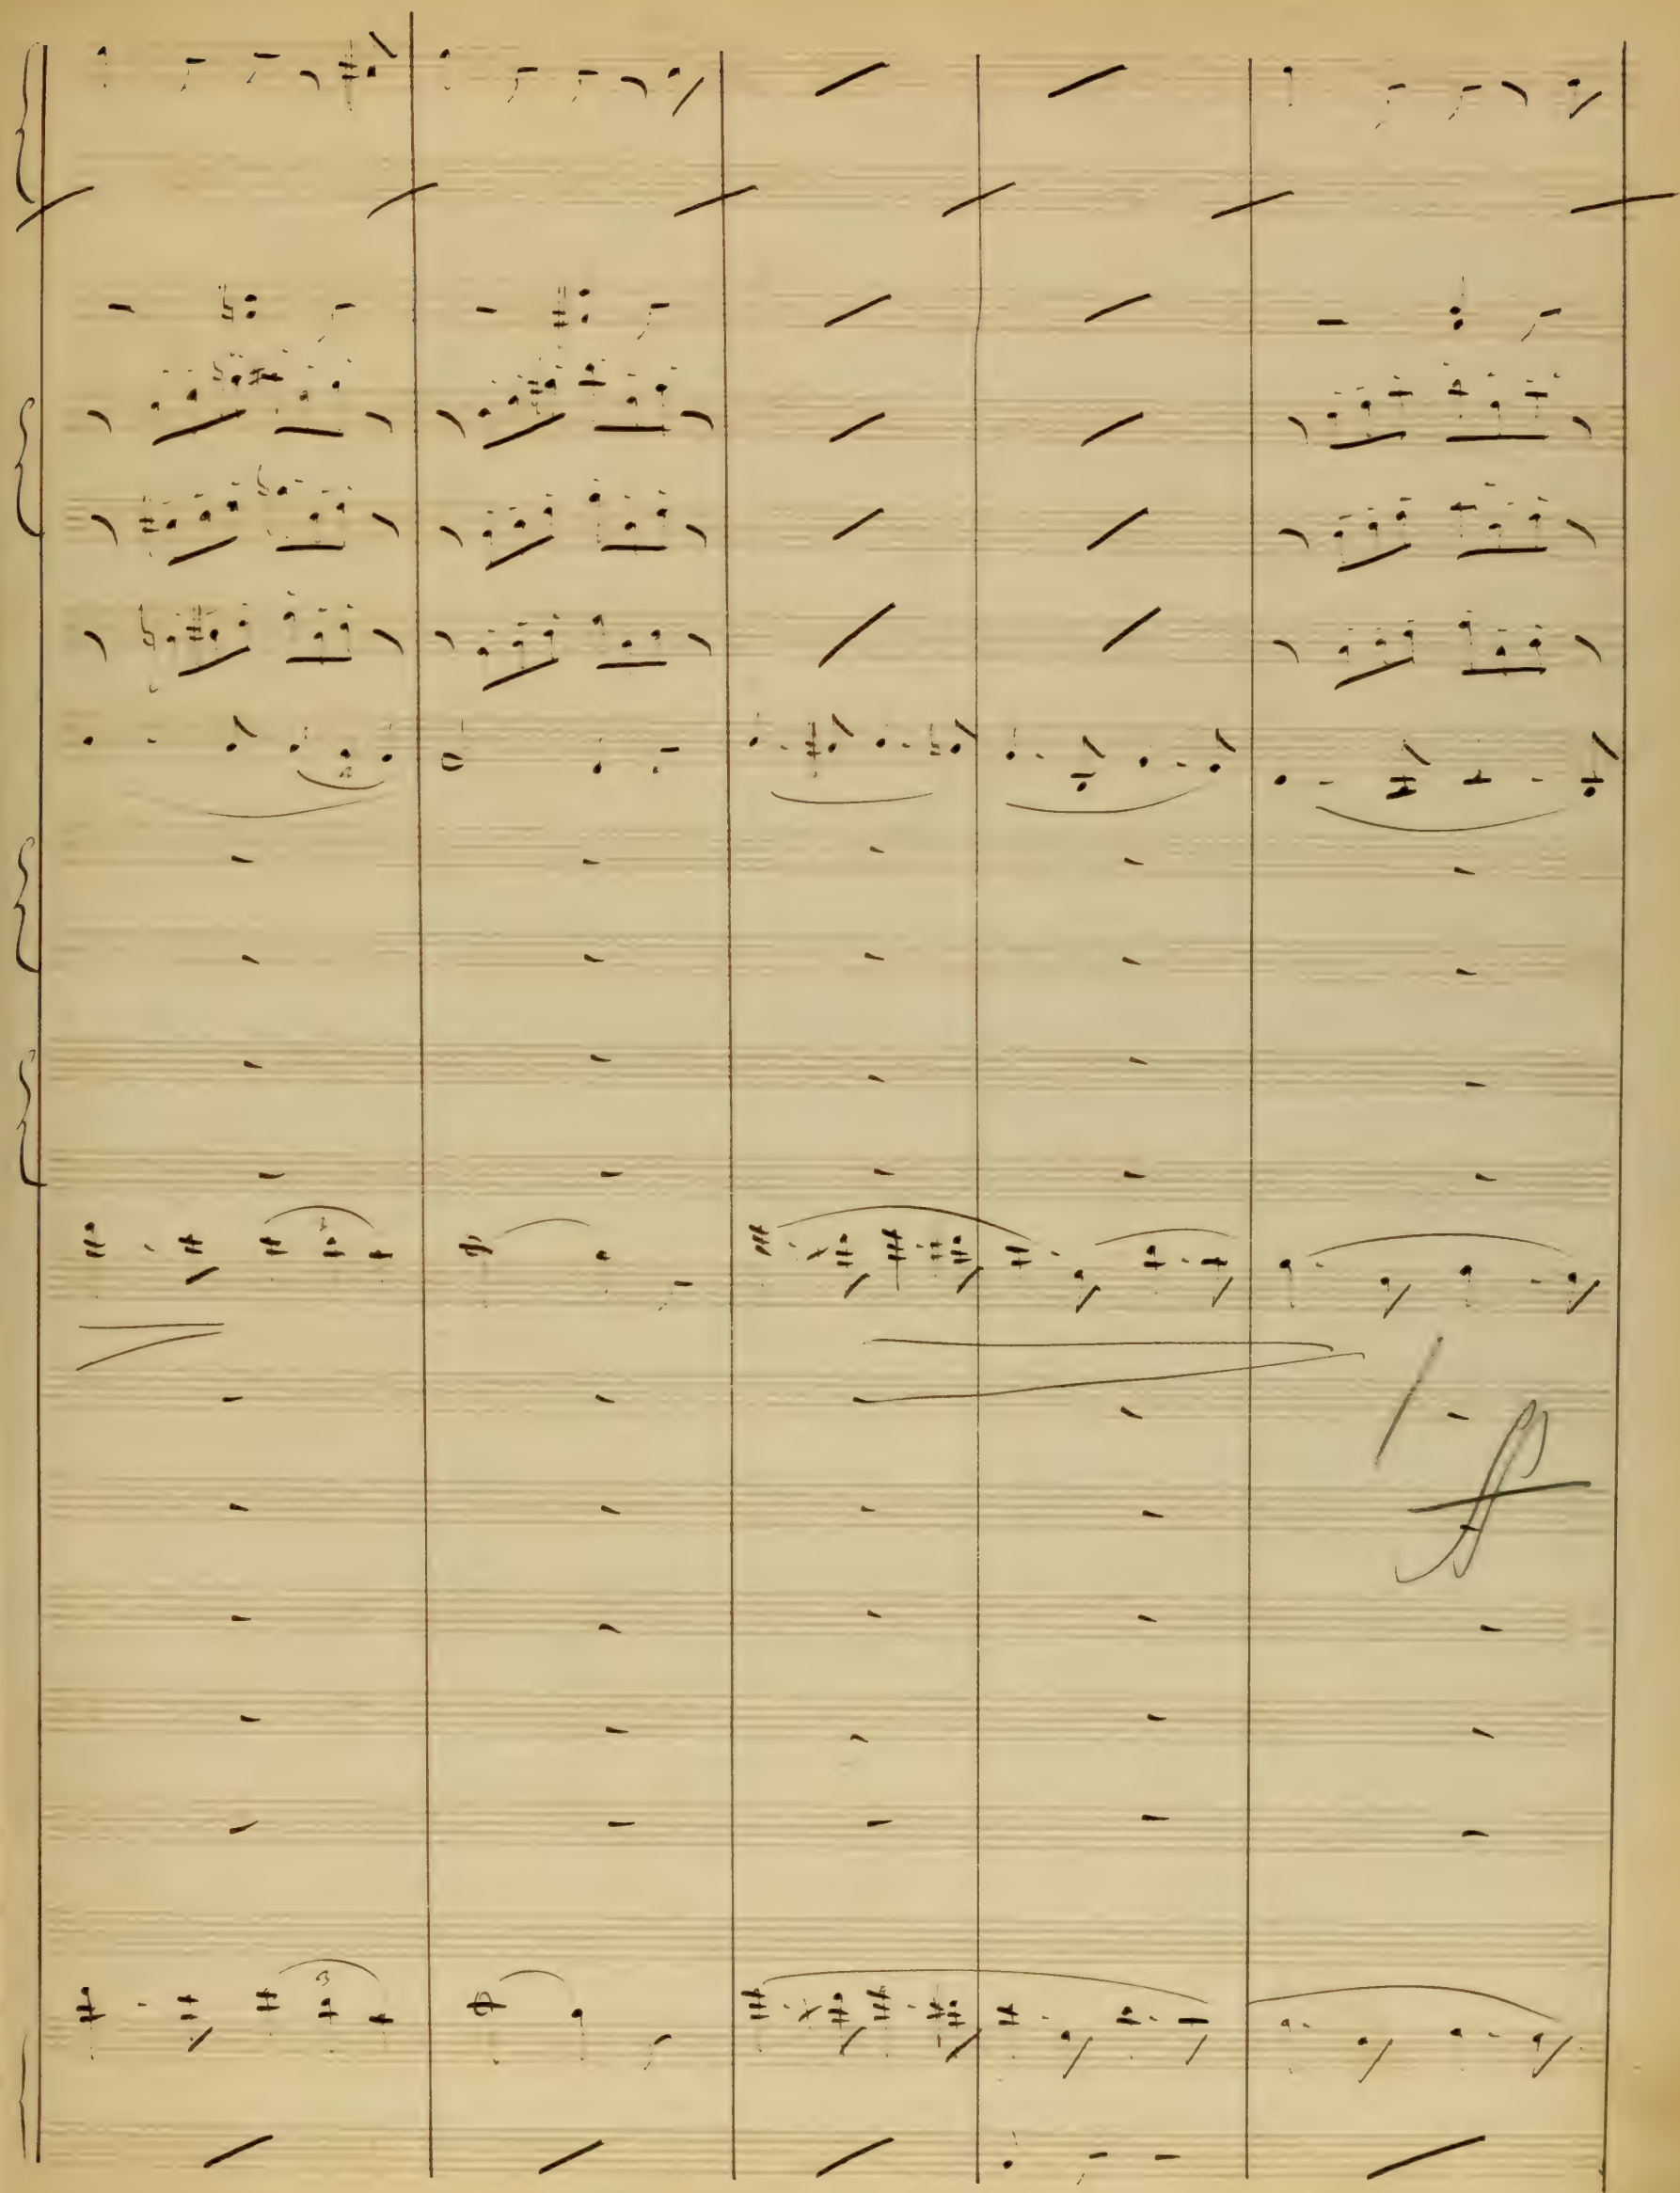 3
3
ff
3